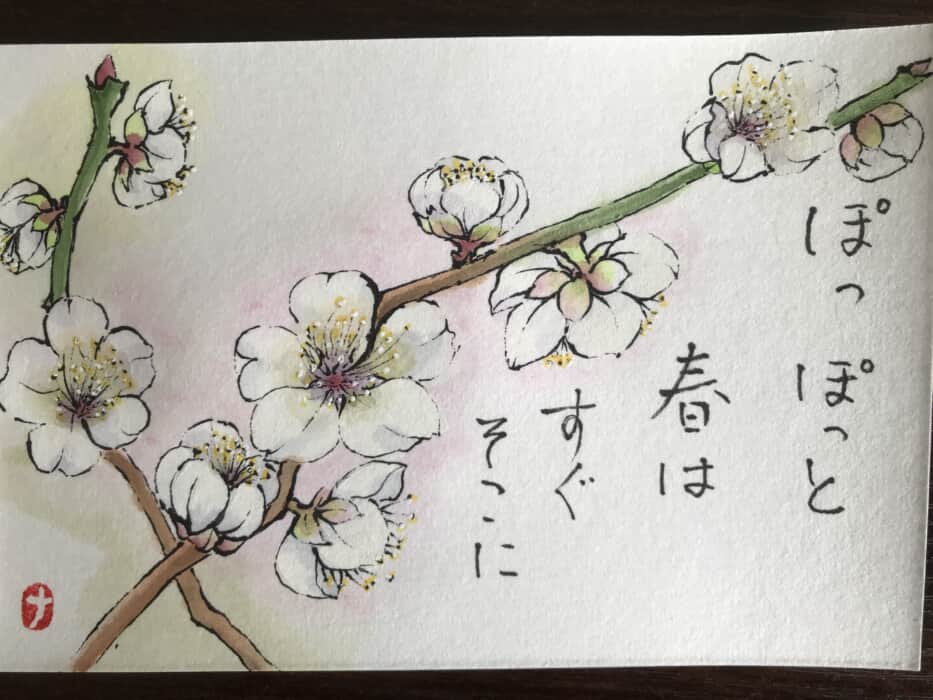 ぽっ ぽっと
春は
すぐ
そこに
ナ